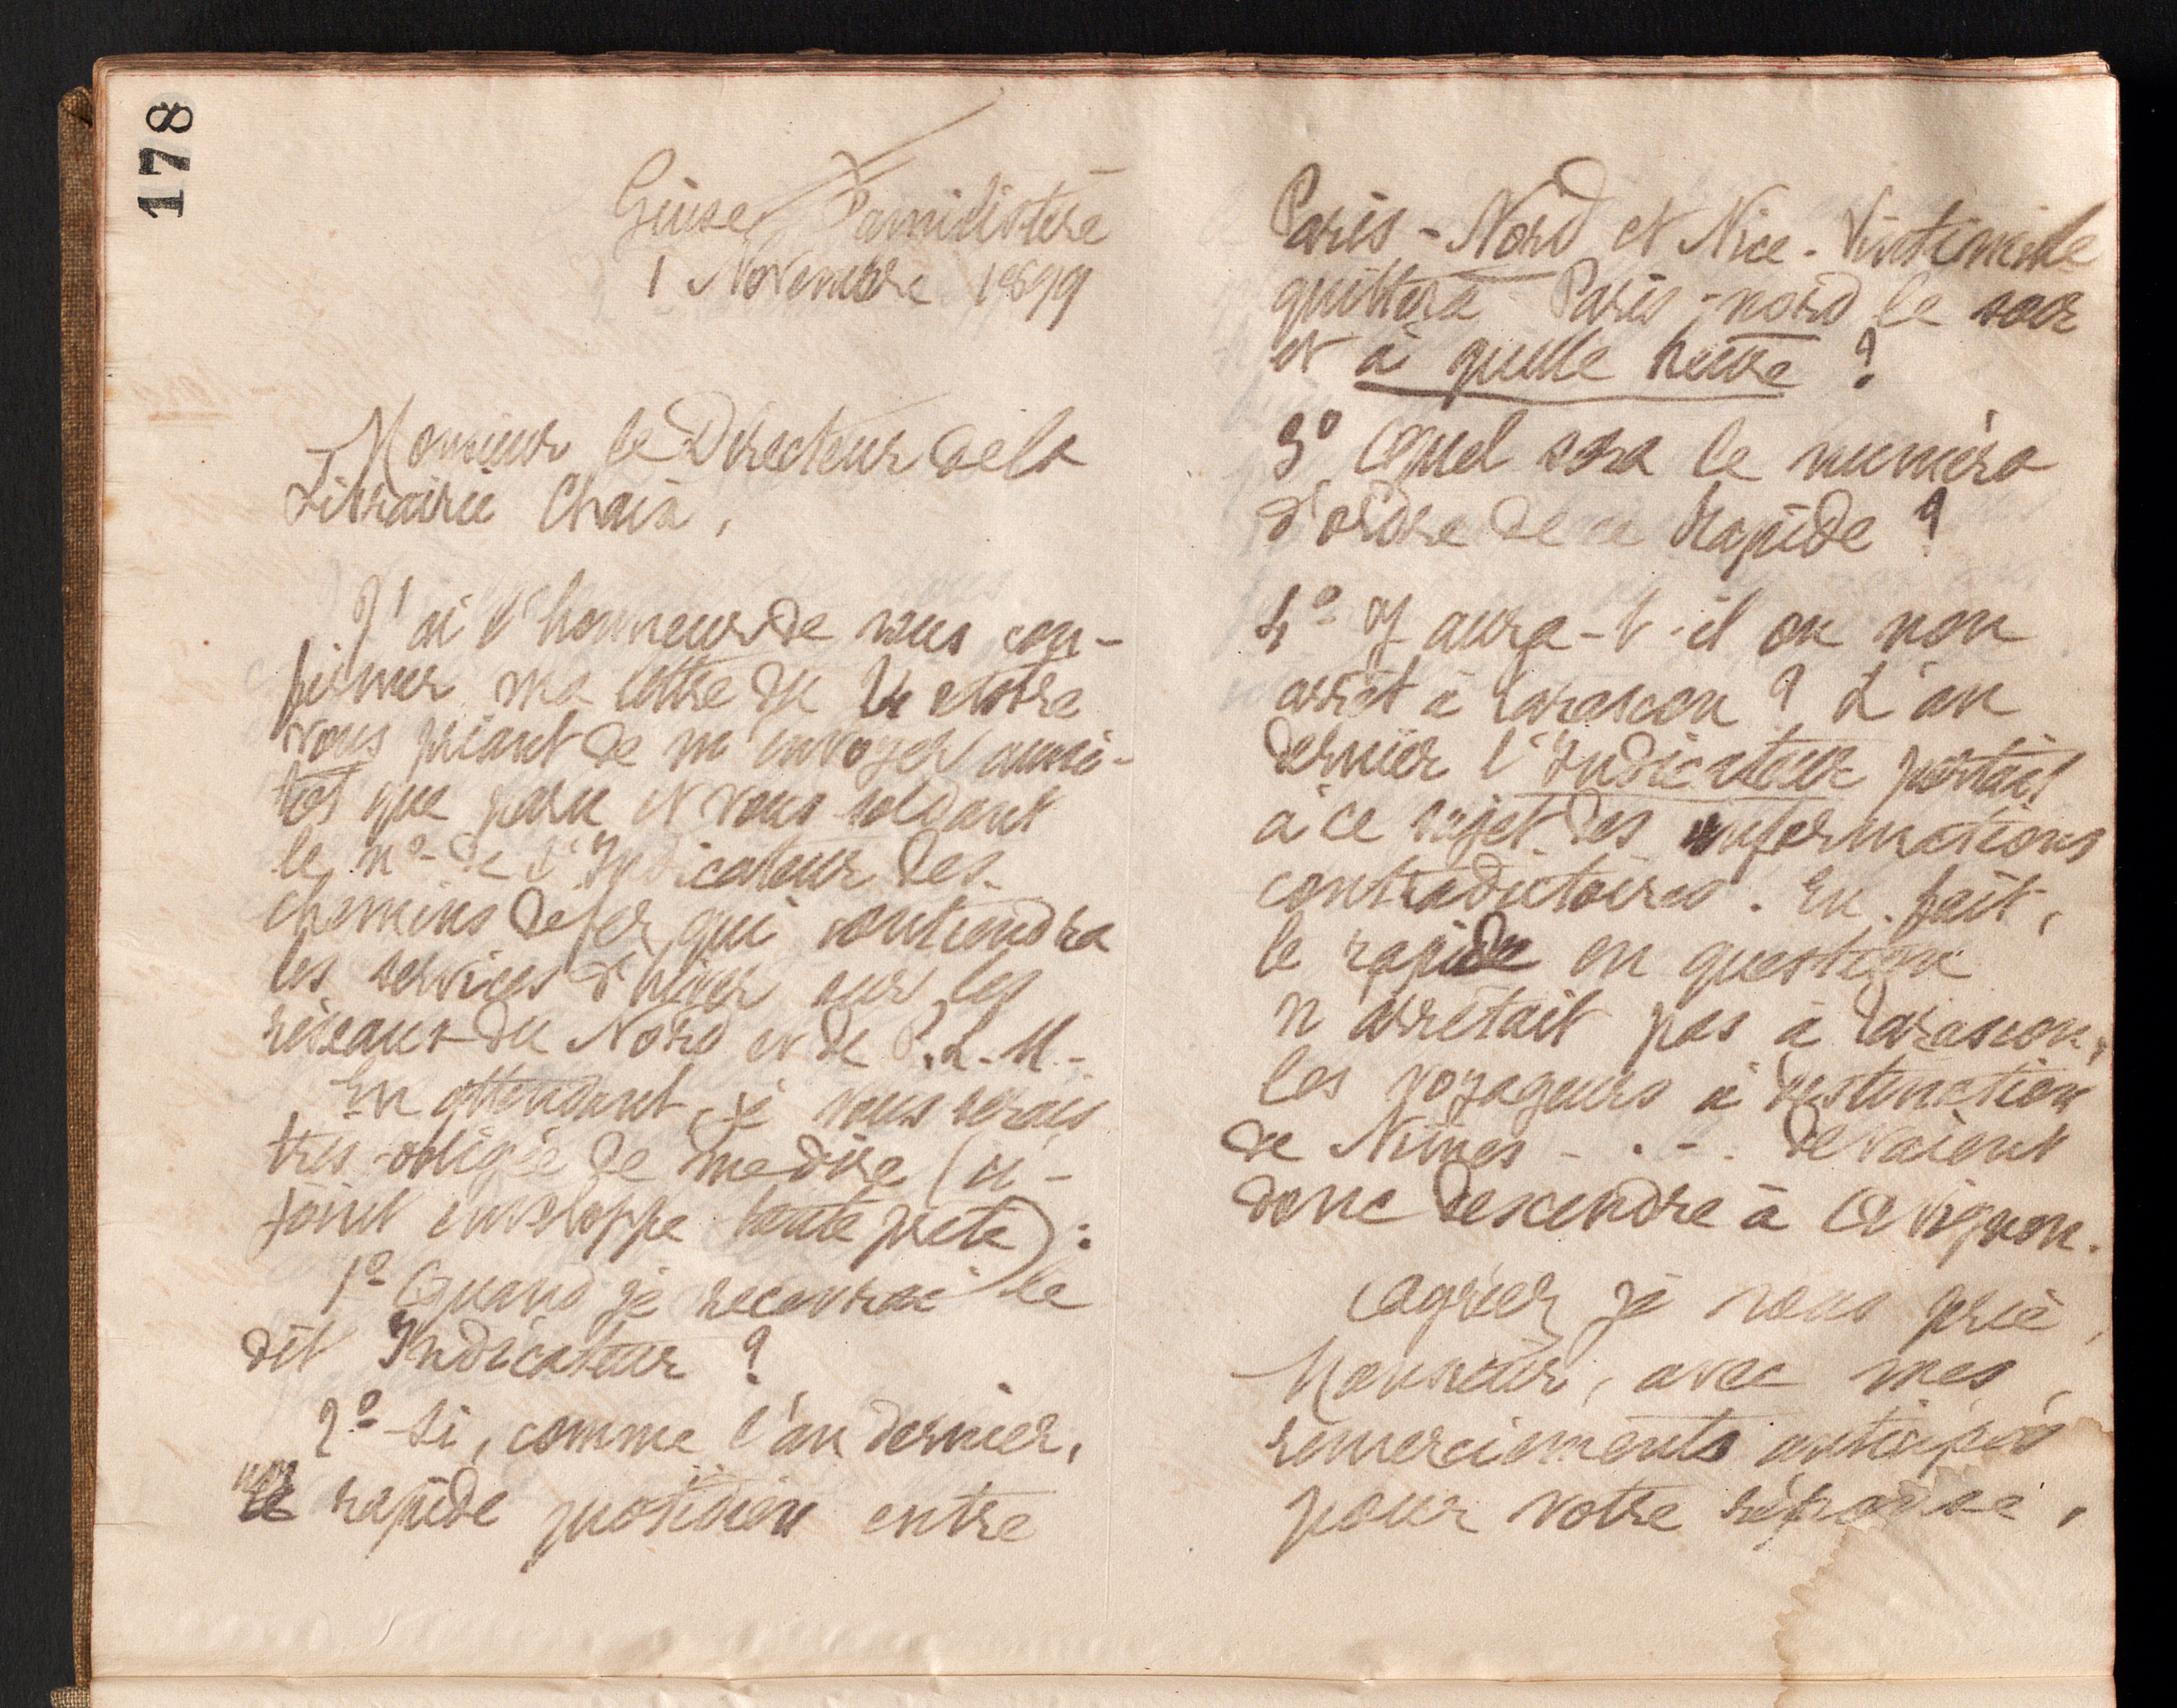 178
Guise Familistère
1 Novembre 1899
Monsieur le Directeur de la
Librairie Chaix,
J'ai l'honneur de vous con-
firmer ma lettre du 24 octobre
vous priant de m'envoyer aussi-
tôt que paru et vous soldant
le no de l'Indicateur des
chemins de fer qui contiendra
les services d'hiver sur les
réseaux du Nord et de P.L.M-
En attendant, je vous serais
très obligée de me dire (ci-
joint enveloppe toute prête) :
1o Quand je recevrai le
dit Indicateur ?
2o Si, comme l'an dernier,
le rapide quotidien entre
Paris-Nord et Nice-Vintimille
quittera Paris-nord le soir
et à quelle heure ?
3o Quel sera le numéro
d'ordre de ce Rapide ?
4o Y aura-t-il ou non
arrêt à Tarascon ? L'an
dernier l'Indicateur portait
à ce sujet des informations
contradictoires. En fait,
le rapide en question
n'arrêtait pas à Tarascon,
les voyageurs à destination
de Nîmes - . - . devaient
donc descendre à Avignon.
Agréer je vous prie,
Monsieur, avec mes
remerciements anticipés
pour votre réponse,